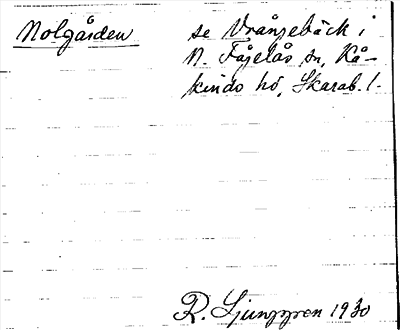 Nolgården
se Vrångebäck i
N. Fågelås sn, Kå-
kinds hd, Skarab. l.
R. Ljunggren 1930